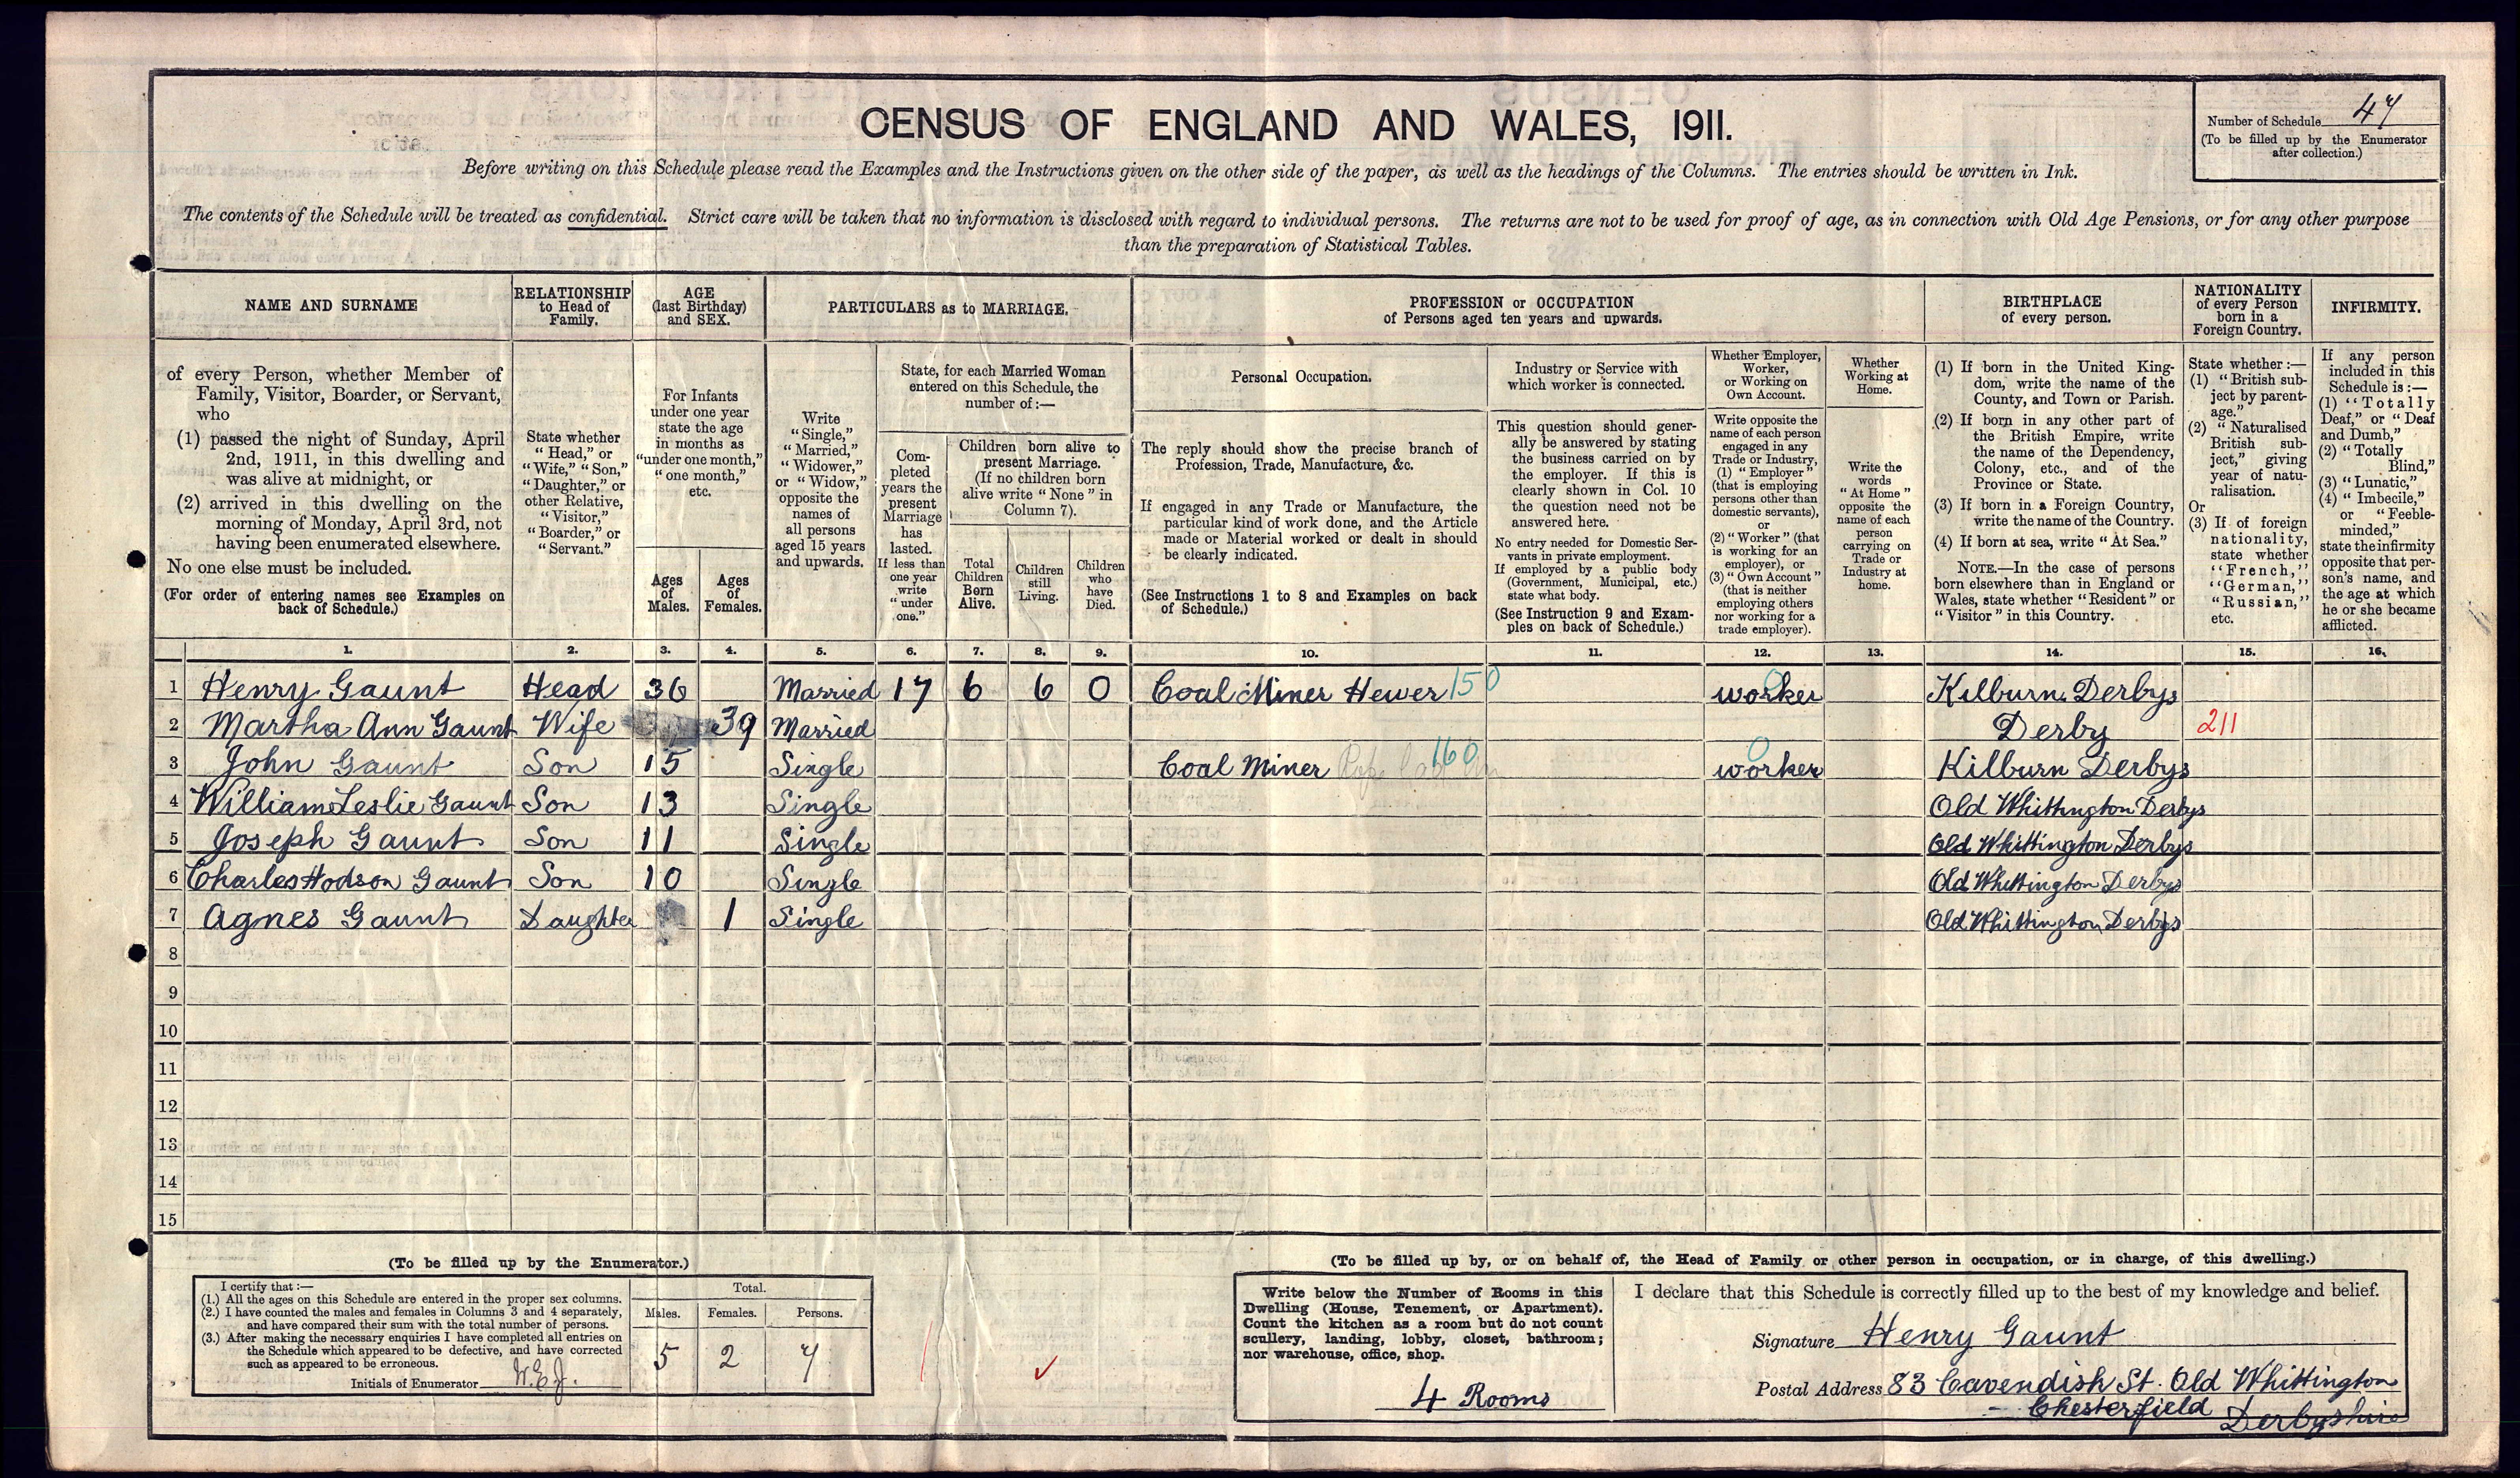 CENSUS OF ENGLAND AND WALES, 1911.
Number of Schedule 47
(To be filled up by the Enumerator
after collection.)
Before writing on this Schedule please read the Examples and the Instructions given on the other side of the paper, as well as the headings of the Columns. The entries should be written in Ink.
The contents of the Schedule will be treated as confidential. Strict care will be taken that no information is disclosed with regard to individual persons. The returns are not to be used for proof of age, as in connection with Old Age Pensions, or for any other purpose
than the preparation of Statistical Tables.
NAME AND SURNAME
of every Person, whether Member of
Family, Visitor, Boarder, or Servant,
who
(1) passed the night of Sunday, April
2nd, 1911, in this dwelling and
was alive at midnight, or
(2) arrived in this dwelling on the
morning of Monday, April 3rd, not
having been enumerated elsewhere.
No one else must be included.
(For order of entering names see Examples on
back of Schedule.)
RELATIONSHIP
to Head of
Family.
State whether
"Head," or
"Wife," "Son,"
"Daughter," or
other Relative,
"Visitor,"
"Boarder," or
"Servant."
AGE
(last Birthday)
and SEX.
For Infants
under one year
state the age
in months as
"under one month,"
"one month,"
etc.
Ages
of
Males.
Ages
of
Females.
PARTICULARS as to MARRIAGE.
Write
"Single,"
"Married,"
"Widower,"
or "Widow,"
opposite the
names of
all persons
aged 15 years
and upwards.
State, for each Married Woman
entered on this Schedule, the
number of:—
Com-
pleted
years the
present
Marriage
has
lasted.
If less than
one year
write
"under
one."
Children born alive to
present Marriage.
(If no children born
alive write "None" in
Column 7).
Total
Children
Born
Alive.
Children
still
Living.
Children
who
have
Died.
PROFESSION or OCCUPATION
of Persons aged ten years and upwards.
Personal Occupation.
The reply should show the precise branch of
Profession, Trade, Manufacture, &c.
If engaged in any Trade or Manufacture, the
particular kind of work done, and the Article
made or Material worked or dealt in should
be clearly indicated.
(See Instructions 1 to 8 and Examples on back
of Schedule.)
Industry or Service with
which worker is connected.
This question should gener-
ally be answered by stating
the business carried on by
the employer. If this is
clearly shown in Col. 10
the question need not be
answered here.
No entry needed for Domestic Ser-
vants in private employment.
If employed by a public body
(Government, Municipal, etc.)
state what body.
(See Instruction 9 and Exam-
ples on back of Schedule.)
Whether Employer,
Worker,
or Working on
Own Account.
Write opposite the
name of each person
engaged in any
Trade or Industry,
(1) "Employer"
(that is employing
persons other than
domestic servants),
or
(2) "Worker" (that
is working for an
employer), or
(3) "Own Account"
(that is neither
employing others
nor working for a
trade employer).
Whether
Working at
Home.
Write the
words
"At Home"
opposite the
name of each
person
carrying on
Trade or
Industry at
home.
BIRTHPLACE
of every person.
(1) If born in the United King-
dom, write the name of the
County, and Town or Parish.
(2) If born in any other part of
the British Empire, write
the name of the Dependency,
Colony, etc., and of the
Province or State.
(3) If born in a Foreign Country,
write the name of the Country.
(4) If born at sea, write "At Sea."
NOTE.—In the case of persons
born elsewhere than in England or
Wales, state whether "Resident" or
"Visitor" in this Country.
NATIONALITY
of every Person
born in a
Foreign Country.
State whether:—
(1) "British sub-
ject by parent-
age."
(2) "Naturalised
British sub-
ject," giving
year of natu-
ralisation.
Or
(3) If of foreign
nationality,
state whether
"French,"
"German,"
"Russian,"
etc.
INFIRMITY.
If any person
included in this
Schedule is:—
(1) "Totally
Deaf," or "Deaf
and Dumb,"
(2) "Totally
Blind,"
(3) "Lunatic,"
(4) "Imbecile,"
or "Feeble-
minded,"
state the infirmity
opposite that per-
son's name, and
the age at which
he or she became
afflicted.
1. 2. 3. 4. 5. 6. 7. 8. 9. 10. 11. 12. 13. 14. 15. 16.
1 Henry Gaunt Head 36 Married 17 6 6 0 Coal Miner Hewer 150 worker 0 Kilburn Derbys
2 Martha Ann Gaunt Wife 39 Married Derby 211
3 John Gaunt Son 15 Single Coal Miner 160 worker 0 Kilburn Derbys
4 William Leslie Gaunt Son 13 Single Old Whittington Derbys
5 Joseph Gaunt Son 11 Single Old Whittington Derbys
6 Charles Hodson Gaunt Son 10 Single Old Whittington Derbys
7 Agnes Gaunt Daughter 1 Single Old Whittington Derbys
8
9
10
11
12
13
14
15
(To be filled up by the Enumerator.)
I certify that:—
(1.) All the ages on this Schedule are entered in the proper sex columns.
(2.) I have counted the males and females in Columns 3 and 4 separately,
and have compared their sum with the total number of persons.
(3.) After making the necessary enquiries I have completed all entries on
the Schedule which appeared to be defective, and have corrected
such as appeared to be erroneous.
Initials of Enumerator W.E.J.
Total.
Males. Females. Persons.
5 2 7
(To be filled up by, or on behalf of, the Head of Family or other person in occupation, or in charge, of this dwelling.)
Write below the Number of Rooms in this
Dwelling (House, Tenement, or Apartment).
Count the kitchen as a room but do not count
scullery, landing, lobby, closet, bathroom;
nor warehouse, office, shop.
4 Rooms
I declare that this Schedule is correctly filled up to the best of my knowledge and belief.
Signature Henry Gaunt
Postal Address 83 Cavendish St. Old Whittington
Chesterfield Derbyshire